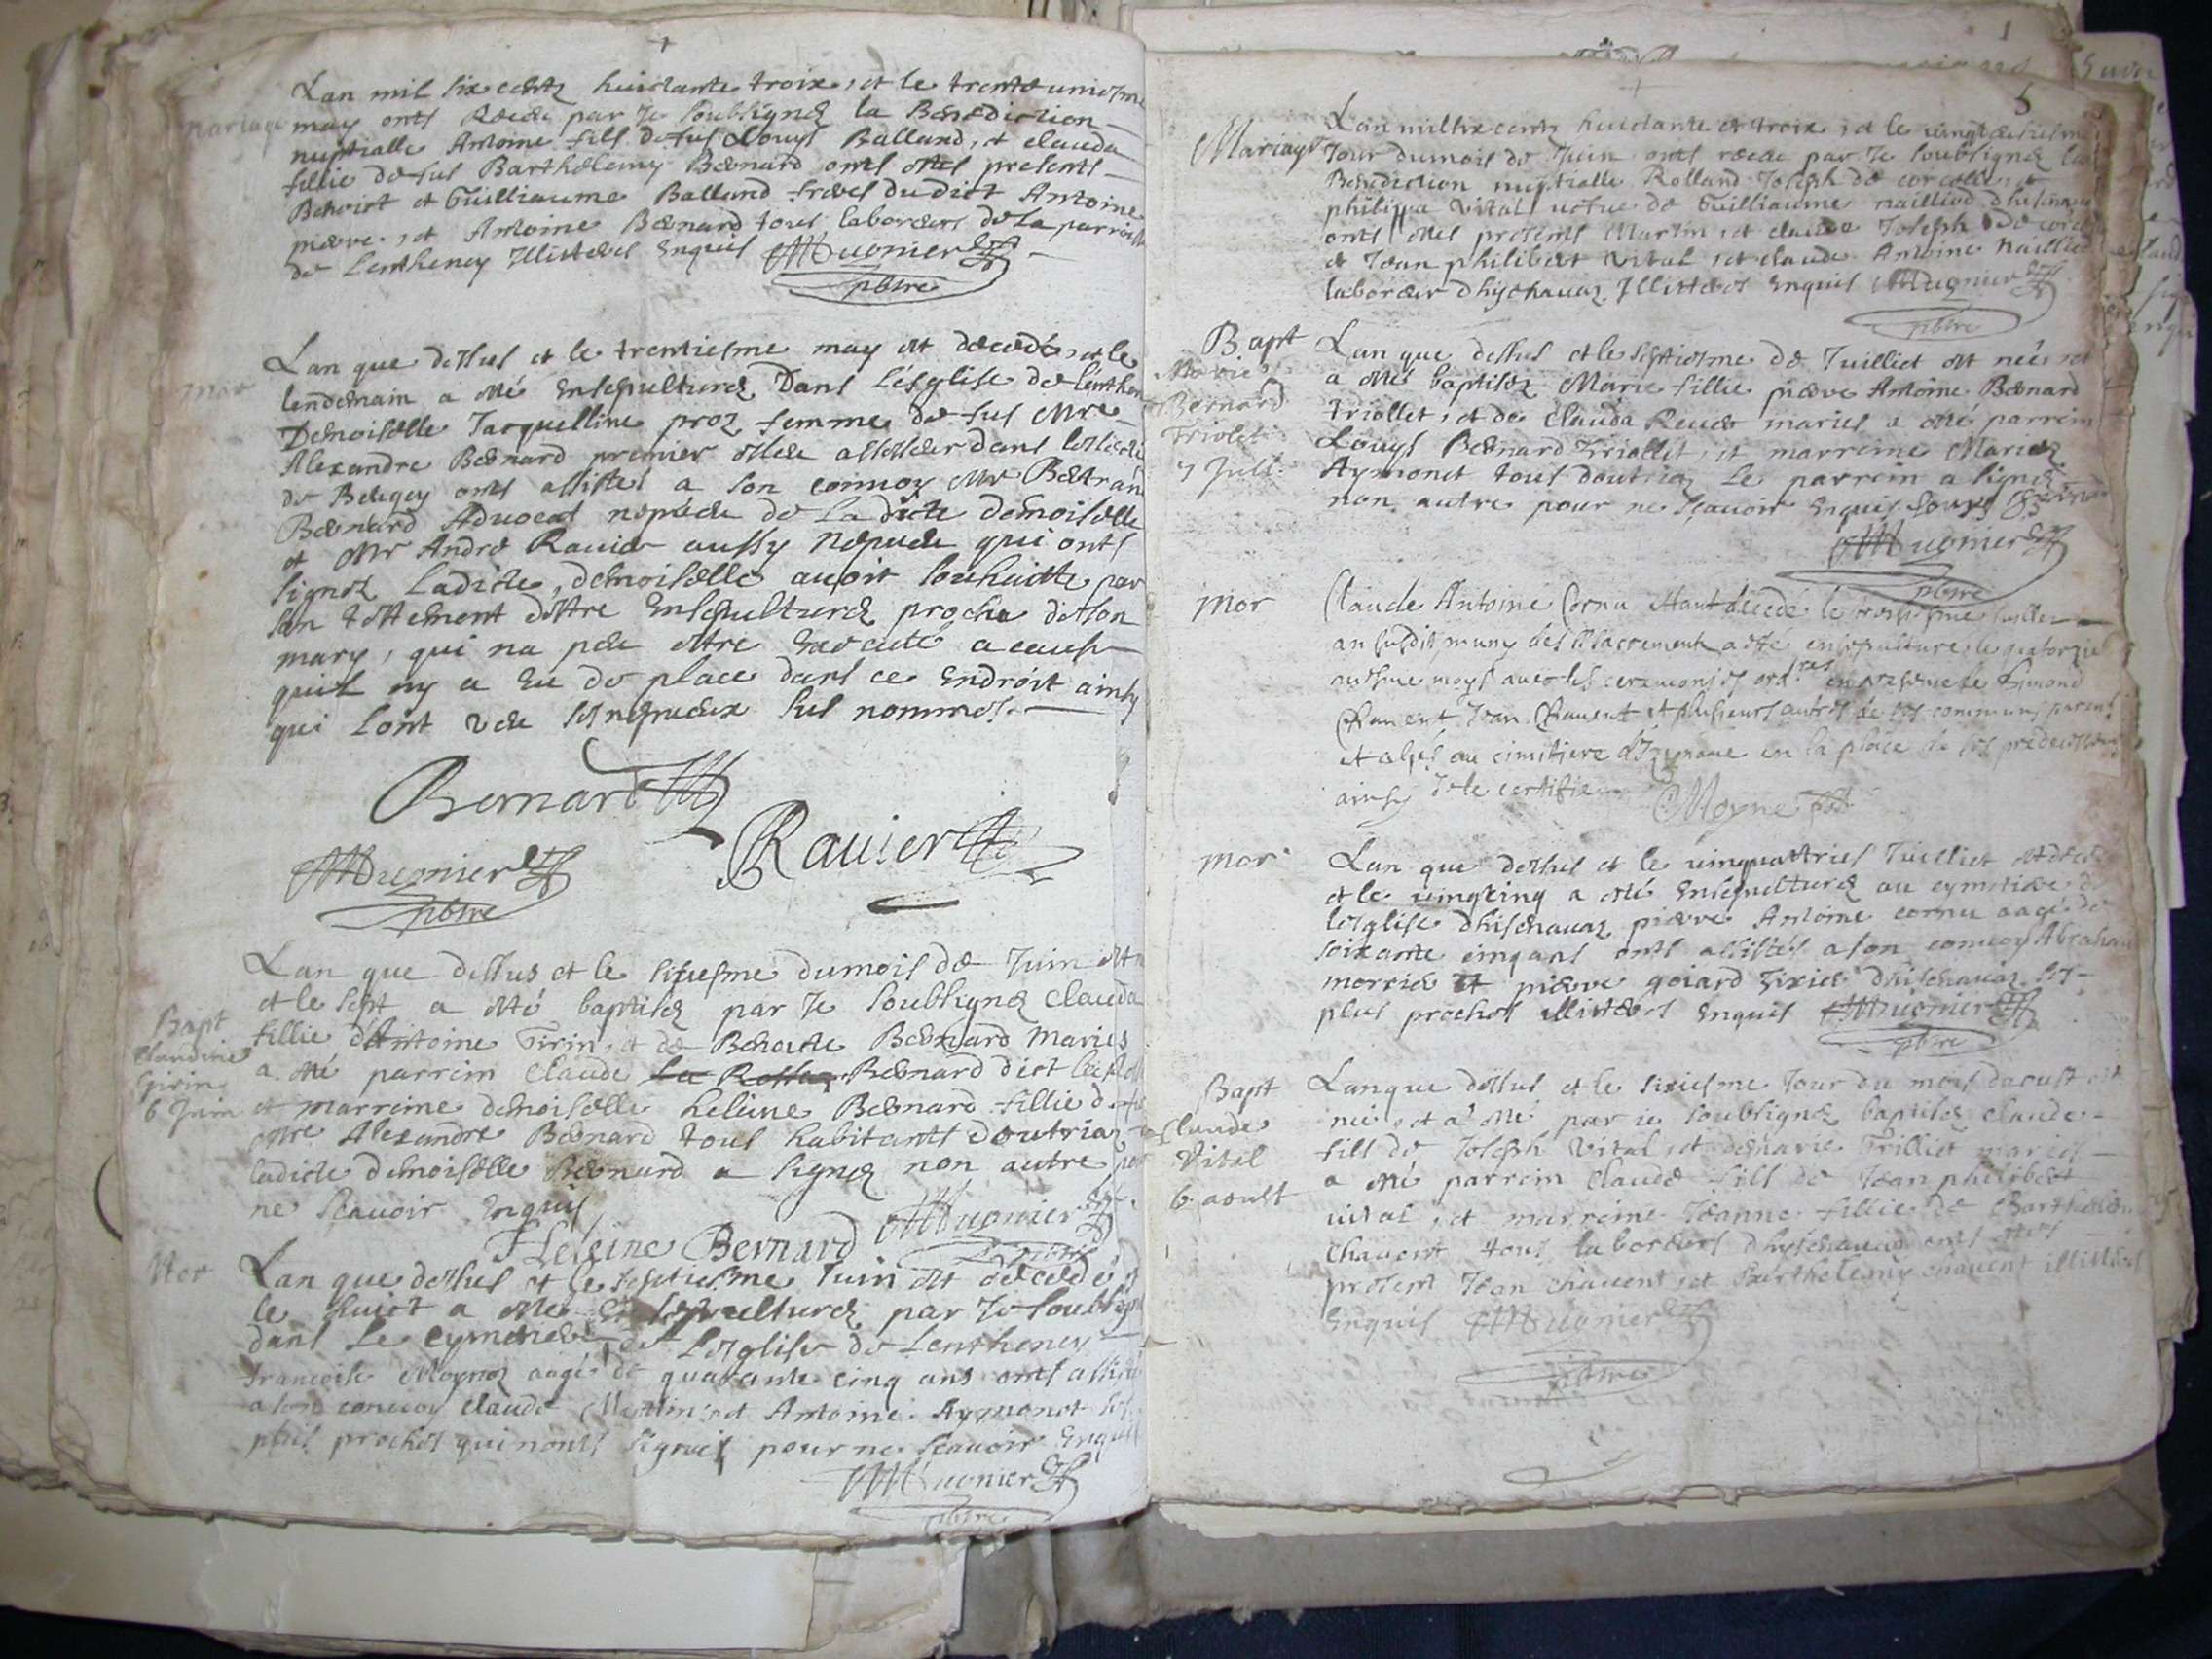 Lan mil six centz huictante troix, et le trente uniesme
mariage
may onts Receu par Je soubsignez la Benediction
nuptialle Antoine fils de fus Louys Balland, et clauda
fillie de fus Barthelemy Bernard onts estes presents
Benoict et Guilliaume Balland freres du dict Antoine
pierre, et Antoine Bernard tous laboreurs de la parroisse
de Lentheney Illisteres Enquis Mugnier
pbtre
Lan que dessus et le trentiesme may est decedé, et le
mor
lendemain a esté Ensepulturez Dans Lésglise de lenthen
Demoiselle Jacquelline proz femme de fus Mre
Alexandre Bernard premier esleu assesseur dans
de Beugey onts assistes a son connoy Mr Bertrand
Bernard Advocat nepueu de La dicte demoiselle
et Mr André Rauier aussy Nepueu qui onts
signez Ladicte, demoiselle auoit souhaitte par
son testement destre Ensepulturez proche de son
mary, qui na peu estre Executé a cause
quil ny a Eu de place dans ce Endroit ainsy
qui sont veu ses nepueux sus nommes
Bernard
Rauier
Mugnier
pbtre
Lan que dessus et le sixiesme du mois de Juin est
et le sept a esté baptisez par Je soubsignez Clauda
Bapt
Claudine
Girin
6 Juin
fillie d'Antoine Girin, et de Benoite Bernard Maries
a esté parrein Claude Bernard dict
et marreine demoiselle heleine Bernard fillie de fu
Mre Alexandre Bernard tous habitants doutriaz
ladicte demoiselle Bernard a signez non autre
ne scauoir Enquis Mugnier
Heleine Bernard pbtre
Mor
Lan que dessus et le septiesme Juin est decede et
le huict a esté Ensepulturez par Je soubsign
dans Le cymetiere de Lesglise de Lentheney
francoise Moynoz aage de quarante cinq ans onts assist
a son connoy claude Martin et Antoine Aymonet
plus proches qui nonts signes pour ne scauoir Enquis
Mugnier
pbtre
5
Mariage
Lan mil six cents huictante et troix, et le
Jour du mois de Juin onts receu par Je soubsignez la
Benediction nuptialle Rolland Joseph de
philippa Vital uefue de Guilliaume naillod
onts estes presents Martin, et claude Joseph de
et Jean philibert Vital, et claude Antoine naillod
laboreur dhyschauaz Illisteres Enquis Mugnier
pbtre
Bapt
Marie
Bernard
Triolet
7 Juli.
Lan que dessus et le septiesme de Juilliet est neé, et
a estés baptisez Marie fillie pierre Antoine Bernard
Triollet, et de Clauda Reuer maries a esté parrein
Louys Bernard Triollet, et marreine Mariez
Aymonet tous doutriaz Le parrein a signez
non autre pour ne scauoir Enquis Louys Bernard
Mugnier
pbtre
mor
Claude Antoine Cornu estant decedé le Juillet
an susdit muny des Ssacrements a esté ensepulturé le quatorzie
mesme moys auec les ceremonies ordres en presence de
Chauent, Jean Chauent et plusieurs autres de ses communs parens
au cimitiere en la place de ses predecesseurs
ainsy Je le certifie Moyne
mor
Lan que dessus et le uinquattries Juilliet est deced
et le uingtcinq a esté Ensepulturez au cymetiere de
lesglise dhischauaz pierre Antoine cornu aagé de
soixante cinq ans onts assistés a son connoy Abraham
et pierre goiard dhischauaz ses
plus proches illisteres Enquis Mugnier
pbtre
Bapt
Claude
Vital
6 aoust
Lan que dessus et le sixiesme Jour du mois daoust est
neé, et a esté par ie soubsignez baptisez claude
fils de Joseph Vital, et de marie Trilliet maries
a esté parrein Claude fils de Jean philibert
uital, et marreine Jeanne fillie de Barthelem
Chauent tous laboreurs dhyschauaz onts estes
present Jean chauent, et Barthelemy chauent illisteres
Enquis Mugnier
pbtre